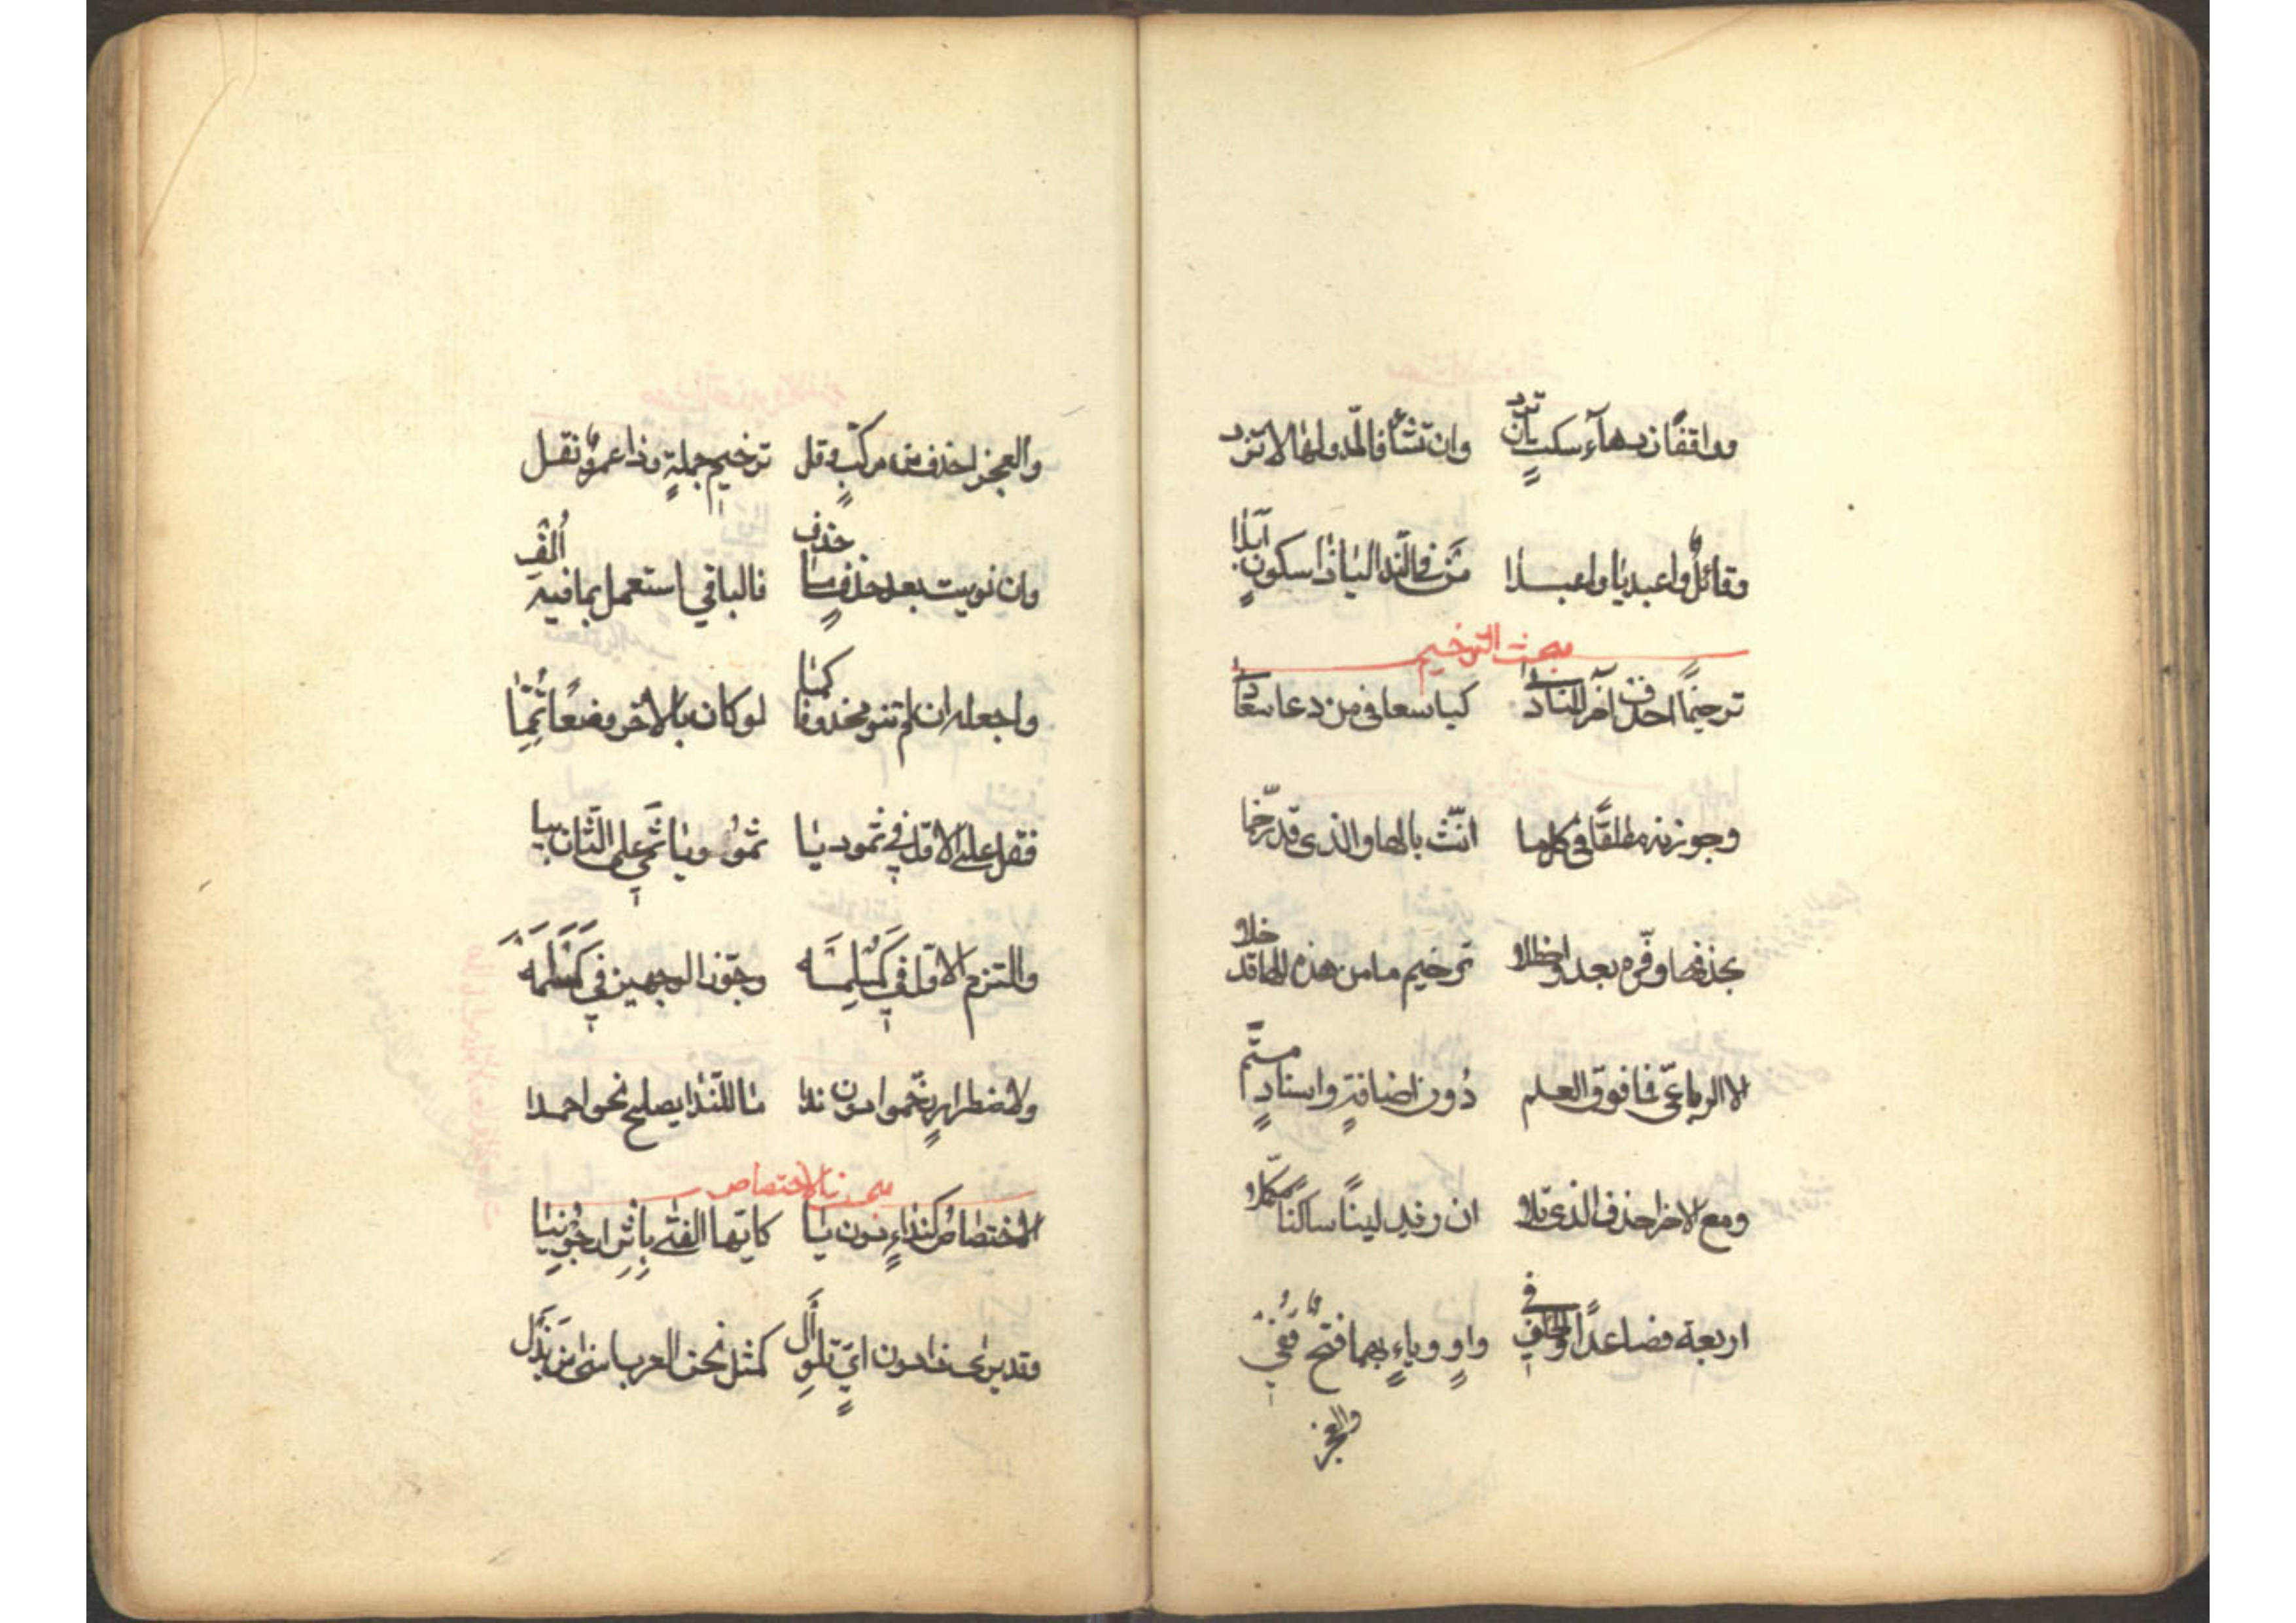 وواقفًا زد هآء سكتٍ ان ترد وان تشأ فالمدّ والها لا تزد
وقائلٌ واعبديا واعبدا من فى النّدا اليا ذا سكونٍ ابدا
مبحث الترخيم
ترخيمًا احذف آخر المنادى كياسعا فى من دعا سعادا
وجوزنه مطلقًا فى كلما انّث بالها والذى قد رخّما
بحذفها وفّره بعد واحظلا ترخيم ما من هذه الها قد خلا
الا الرباعىّ فما فوق العلم دون اضافةٍ واسنادٍ متمّ
ومع الاخر احذف الذى تلا ان زيد لينًا ساكنًا مكمّلا
اربعة فصاعدًا والخلف فى واوٍ وياءٍ بهما فتحٌ قُفى
والعجز
والعجز احذف من مركّبٍ وقل ترخيم جملةٍ وذا عمروٌ نقل
وان نويت بعد حذفٍ ما حذف فالباقى استعمل بما فيه اُلف
واجعله ان لم تنو محذوفًا كما لو كان بالاخر وضعًا تُمّما
فقل على الاوّل فى ثمود يا ثمو ويا ثمى على الثّان بيا
والتزم الاوّل فى كَمُسْلِمَه وجوّز الوجهين فى كَمَسْلَمَه
ولاضطرارٍ رخّموا دون ندا ما للنّدا يصلح نحو احمدا
مبحث الاختصاص
الاختصاصُ كنداءٍ دون يا كايّها الفتى بإثر ارجونيا
وقد يرى ذا دون اىٍّ تلو أل كمثل نحن العرب اسخى من بذل